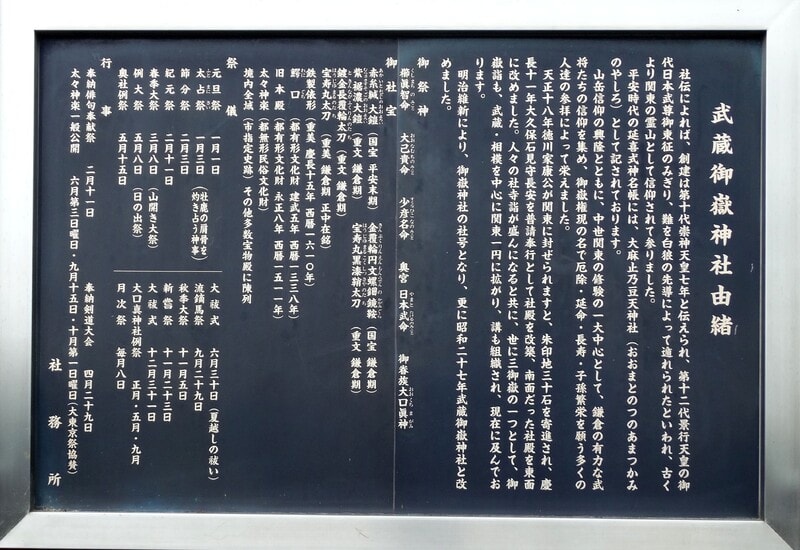 武蔵御嶽神社由緒
社伝によれば、創建は第十代崇神天皇七年と伝えられ、第十二代景行天皇の御
代日本武尊御東征のみぎり、難を白狼の先導によって遁れられたといわれ、古く
より関東の霊山として信仰されて参りました。
平安時代の延喜式神名帳には、大麻止乃豆天神社(おおまとのつのあまつかみ
のやしろ)として記されております。
山岳信仰の興隆とともに、中世関東の修験の一大中心として、鎌倉の有力な武
将たちの信仰を集め、御嶽権現の名で厄除・延命・長寿・子孫繁栄を願う多くの
人達の参拝によって栄えました。
天正十八年徳川家康公が関東に封ぜられますと、朱印地三十石を寄進され、慶
長十一年大久保石見守長安を普請奉行として社殿を改築、南面だった社殿を東面
に改めました。人々の社寺詣が盛んになると共に、世に三御嶽の一つとして、御
嶽詣も、武蔵・相模を中心に関東一円に拡がり、講も組織され、現在に及んでお
ります。
明治維新により、御嶽神社の社号となり、更に昭和二十七年武蔵御嶽神社と改
めました。
御祭神
櫛眞智命 大己貴命 少彦名命 奥宮 日本武命 御眷族大口眞神
御社宝
赤糸縅大鎧(国宝 平安末期) 金覆輪円文螺鈿鏡鞍(国宝 鎌倉期)
紫裾濃大鎧(重文 鎌倉期) 宝寿丸黒漆鞘太刀(重文 鎌倉期)
鍍金長覆輪太刀(重文 鎌倉期)
宝寿丸太刀(重美 鎌倉期 正中在銘)
鉄製俵形(重美 慶長十五年 西暦一六一〇年)
鰐口(都有形文化財 建武五年 西暦一三三八年)
旧本殿(都有形文化財 永正八年 西暦一五一一年)
太々神楽(都無形民俗文化財)
境内全域(市指定史跡)その他多数宝物殿に陳列
祭儀
元旦祭 一月一日
太占祭 一月三日(牡鹿の肩骨を灼き占う神事)
節分祭 二月三日
紀元祭 二月十一日
春季大祭 三月八日(山開き大祭)
例大祭 五月八日(日の出祭)
奥社例祭 五月十五日
大祓式 六月三十日(夏越しの祓い)
流鏑馬祭 九月二十九日
秋季大祭 十一月五日
新嘗祭 十一月二十三日
大祓式 十二月三十一日
大口真神社例祭 正月・五月・九月
月次祭 毎月八日
行事
奉納俳句奉献祭 二月十一日 奉納剣道大会 四月二十九日
太々神楽一般公開 六月第三日曜日・九月十五日・十月第一日曜日(大東京祭協賛)
社務所